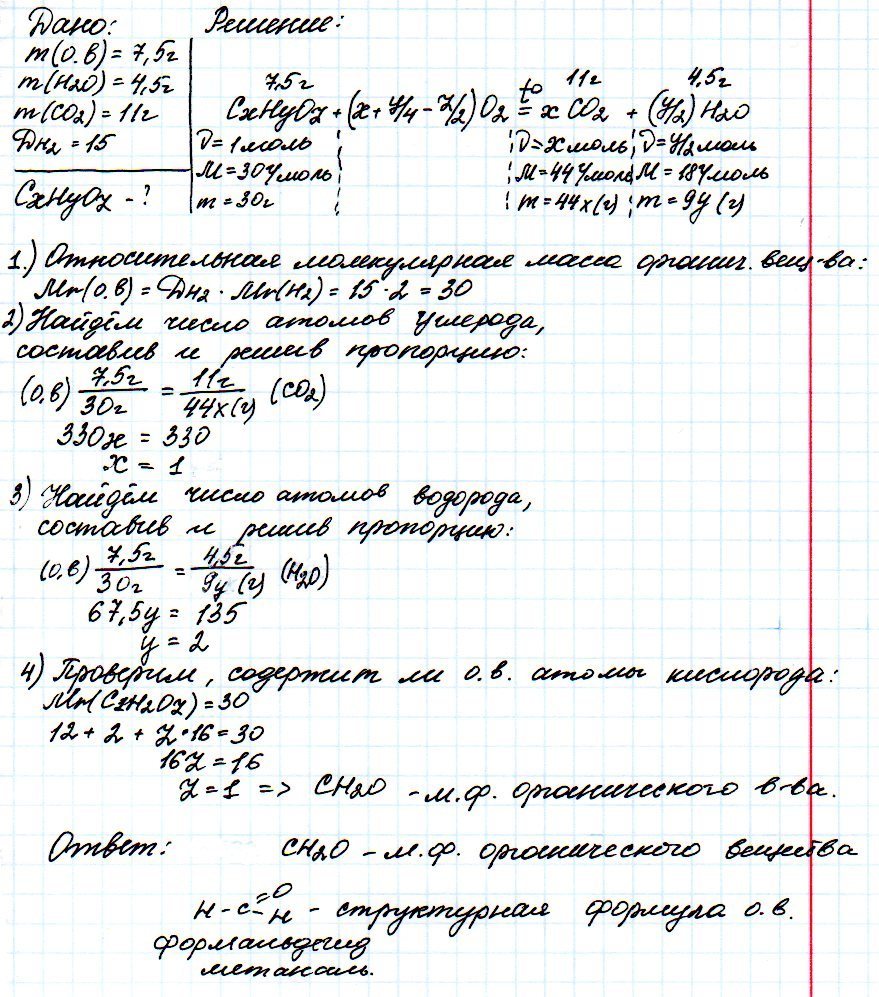 Дано: Решение:
m(о.в) = 7,5г
m(H2O) = 4,5г
m(CO2) = 11г
Дн2 = 15
CxHyOz - ?
7,5г 11г 4,5г
CxHyOz + (x + y/4 - z/2) O2 t° = x CO2 + (y/2) H2O
ν = 1 моль ν = x моль ν = y/2 моль
M = 30 г/моль M = 44 г/моль M = 18 г/моль
m = 30г m = 44x (г) m = 9y (г)
1.) Относительная молекулярная масса органич. вещ-ва:
Mr(о.в) = Дн2 · Mr(H2) = 15 · 2 = 30
2) Найдём число атомов углерода,
составив и решив пропорцию:
(о.в) 7,5г/30г = 11г/44x(г) (CO2)
330x = 330
x = 1
3) Найдём число атомов водорода,
составив и решив пропорцию:
(о.в) 7,5г/30г = 4,5г/9y (г) (H2O)
67,5y = 135
y = 2
4) Проверим, содержит ли о.в. атомы кислорода:
Mr(CxH2Oz) = 30
12 + 2 + z · 16 = 30
16z = 16
z = 1 => CH2O - м.ф. органического в-ва.
Ответ: CH2O - м.ф. органического вещества
H - C = O - H - структурная формула о.в.
формальдегид
метаналь.